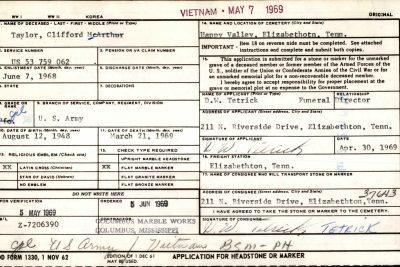 VIETNAM - MAY 7 1969
WW I
WW II
KOREA
NAME OF DECEASED - LAST - FIRST - MIDDLE (Print or Type)
Taylor, Clifford McArthur
SERVICE NUMBER
US 53 759 062
PENSION OR VA CLAIM NUMBER
ENLISTMENT DATE (Month, day, year)
June 7, 1968
DISCHARGE DATE (Month, day, year)
GRADE
Cpl
BRANCH OF SERVICE, COMPANY, REGIMENT, DIVISION
U. S. Army
DATE OF BIRTH (Month, day, year)
August 12, 1948
DATE OF DEATH (Month, day, year)
March 21, 1969
RELIGIOUS EMBLEM (Check one)
XX LATIN CROSS (Christian)
STAR OF DAVID (Hebrew)
NO EMBLEM
15. CHECK TYPE REQUIRED
UPRIGHT MARBLE HEADSTONE
XX FLAT MARBLE MARKER
FLAT GRANITE MARKER
FLAT BRONZE MARKER
DO NOT WRITE HERE
ORDERED
5 MAY 1969
5 JUN 1969
Z-7206390
COLUMBUS MARBLE WORKS
COLUMBUS, MISSISSIPPI
ORIGINAL
14. NAME AND LOCATION OF CEMETERY (City and State)
Happy Valley, Elizabethotn, Tenn.
IMPORTANT: Item 18 on reverse side must be completed. See attached
instructions and complete and submit both copies.
This application is submitted for a stone or marker for the unmarked
grave of a deceased member or former member of the Armed Forces of the
U. S., soldier of the Union or Confederate Armies of the Civil War or for
an unmarked memorial plot for a non-recoverable deceased member.
I hereby agree to accept responsibility for proper placement at grave or
memorial plot at no expense to the Government.
RELATIONSHIP
D.W. Tetrick Funeral Director
211 N. Riverside Drive, Elizabethton, Tenn.
SIGNATURE OF APPLICANT
DATE
Apr. 30, 1969
16. FREIGHT STATION
Elizabethton, Tenn.
17. NAME OF CONSIGNEE WHO WILL TRANSPORT STONE OR MARKER
ADDRESS OF CONSIGNEE (Street, City and State)
37643
211 N. Riverside Drive, Elizabethton, Tenn.
I HAVE AGREED TO TAKE THE STONE OR MARKER TO THE CEMETERY.
SIGNATURE OF CONSIGNEE
TETRICK
Cpl US Army / Vietnam BSM-PH
DD FORM 1330, 1 NOV 62
EDITION OF 1 DEC 61
MAY BE USED.
APPLICATION FOR HEADSTONE OR MARKER